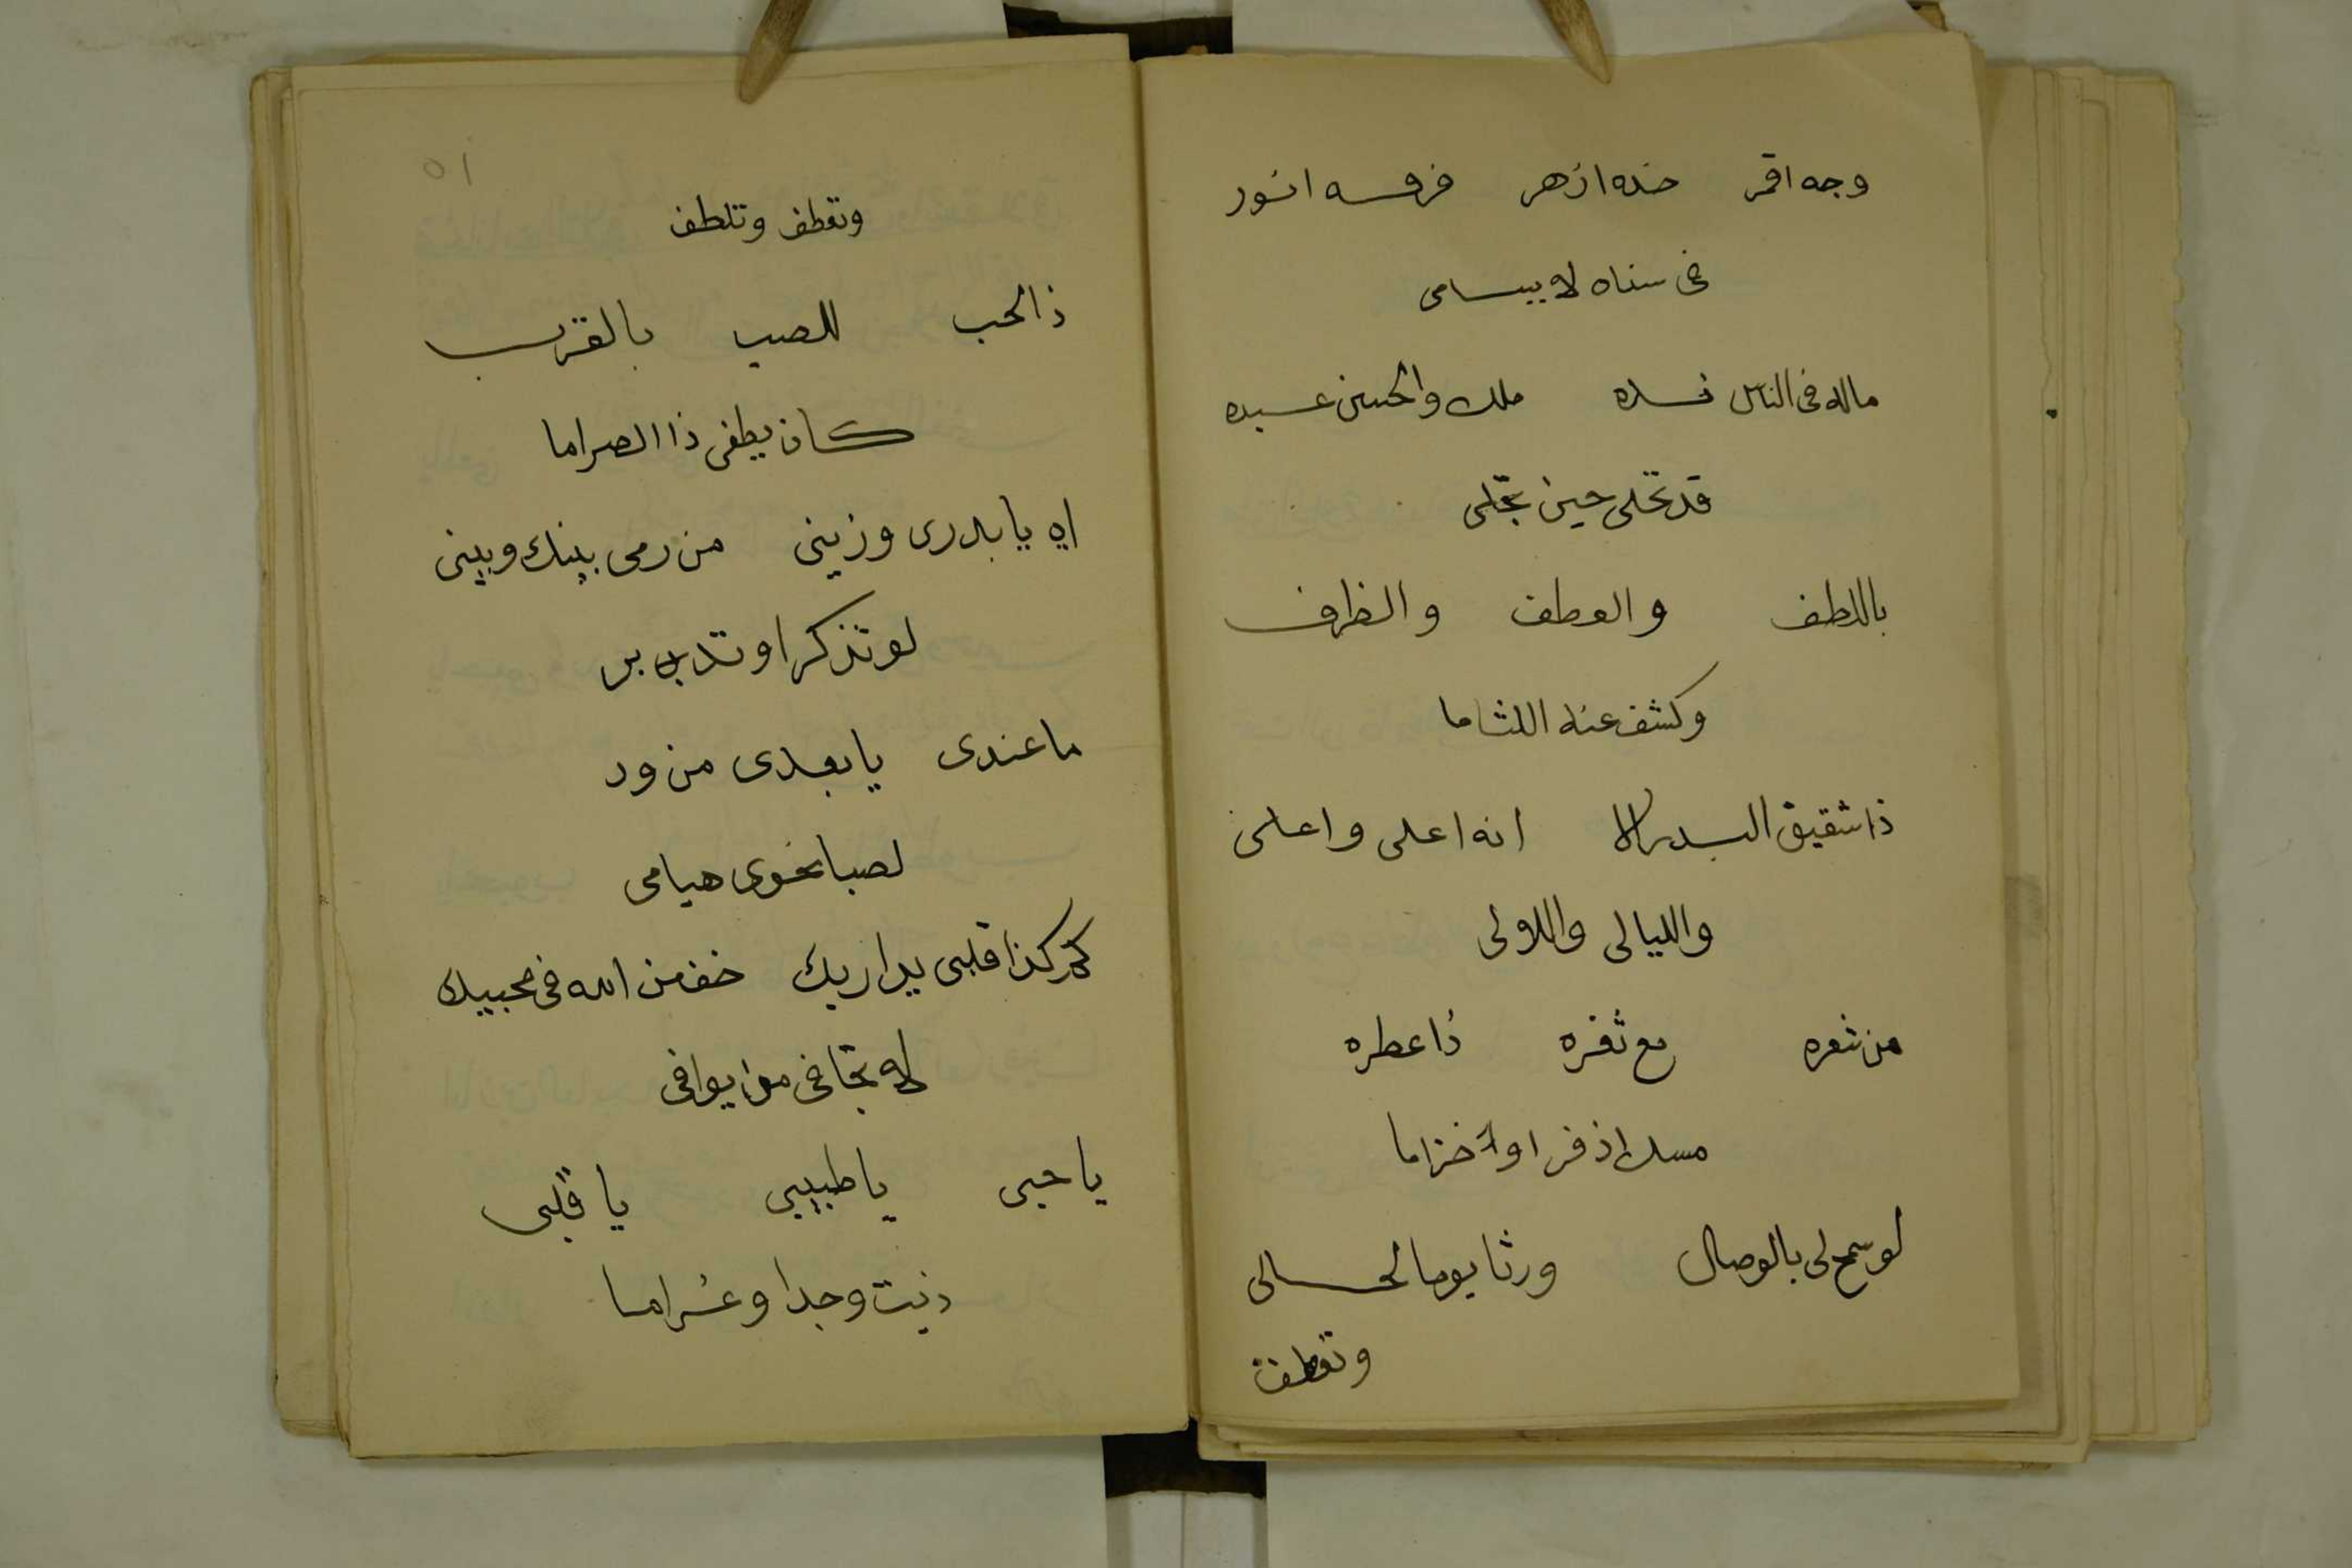 وجه اقمر خده ازهر فرقه انور
فى سناه لا يسامى
ماله فى الناس نده ملك والحسن عبده
قد تحلى حين تجلى
باللطف والعطف والظرف
وكشف عنه اللثاما
ذا شقيق البدر الا انه اعلى واعلى
والليالى واللولى
من شعره مع ثغره ذا عطره
مسك اذفر او خزاما
لو سمح لى بالوصال ورثا يوما لحالى
وتعطف
٥١
وتعطف وتلطف
ذا الحب للصب بالقرب
كان يطفى ذا الضراما
اه يا بدرى وزينى من رمى بينك وبينى
لو تذكر او تدبر
ما عندى يا بعدى من ود
لصبا نحوى هيامى
كم كذا قلبى يداريك خف من الله فى محبيك
لا تجافى من يوافى
يا حبى يا طبيبى يا قلبى
ذبت وجدا وغراما